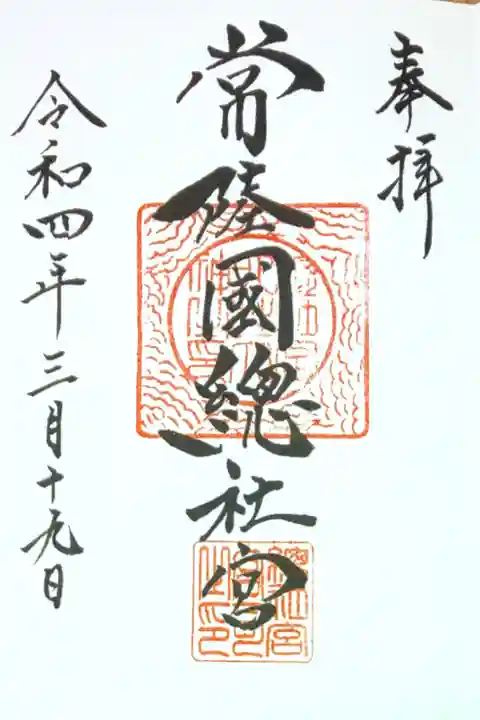 奉拝
常陸國總社宮
令和四年三月十九日